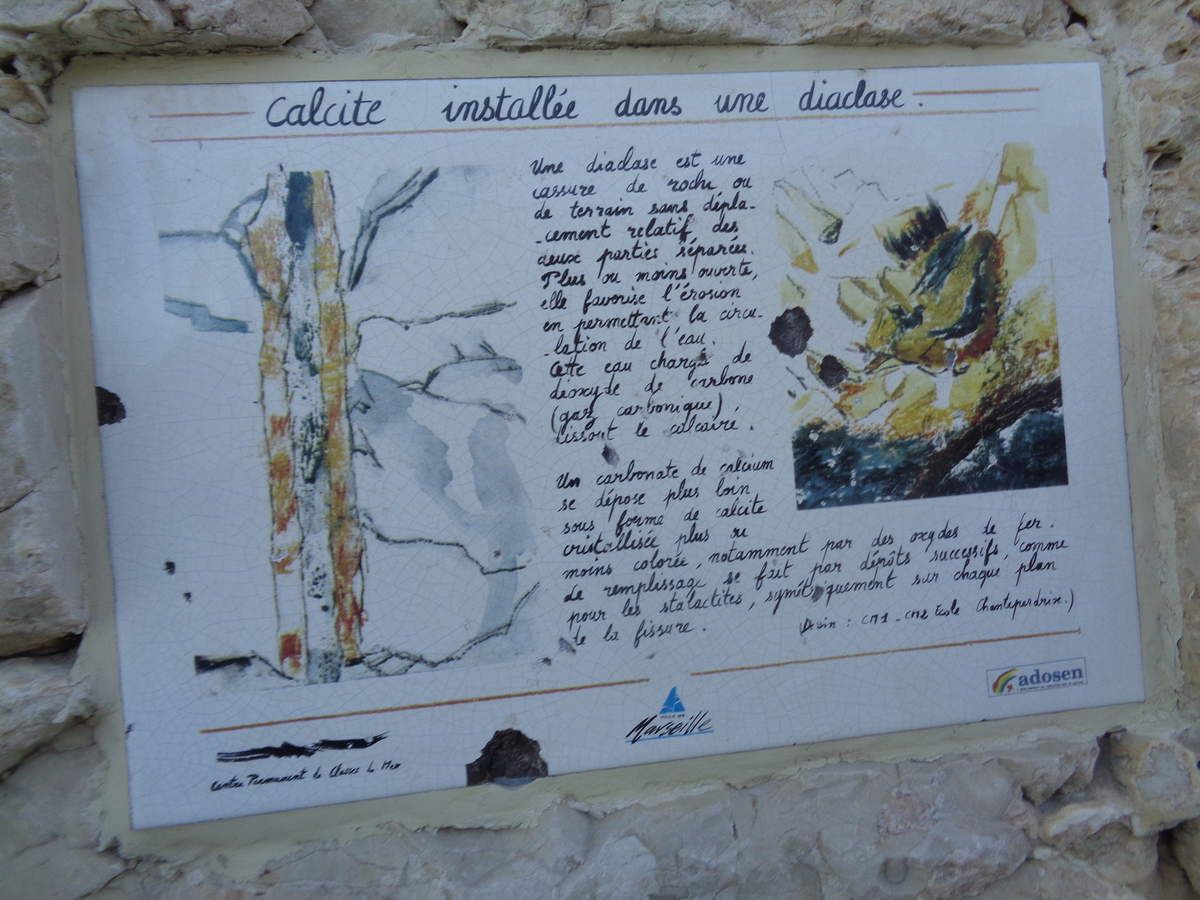 Calcite installée dans une diaclase.
Une diaclase est une
cassure de roche ou
de terrain sans dépla-
-cement relatif des
deux parties séparées.
Plus ou moins ouverte,
elle favorise l'érosion
en permettant la circu-
-lation de l'eau.
Cette eau chargée de
dioxyde de carbone
(gaz carbonique)
dissout le calcaire.
Un carbonate de calcium
se dépose plus loin
sous forme de calcite
cristallisée plus ou
moins colorée, notamment par des oxydes de fer.
Le remplissage se fait par dépôts successifs, comme
pour les stalactites, symétriquement sur chaque plan
de la fissure.
(Dessin : CM1 - CM2 Ecole Chanteperdrix.)
adosen
VILLE DE
Marseille
Centre Permanent de Classes de Mer